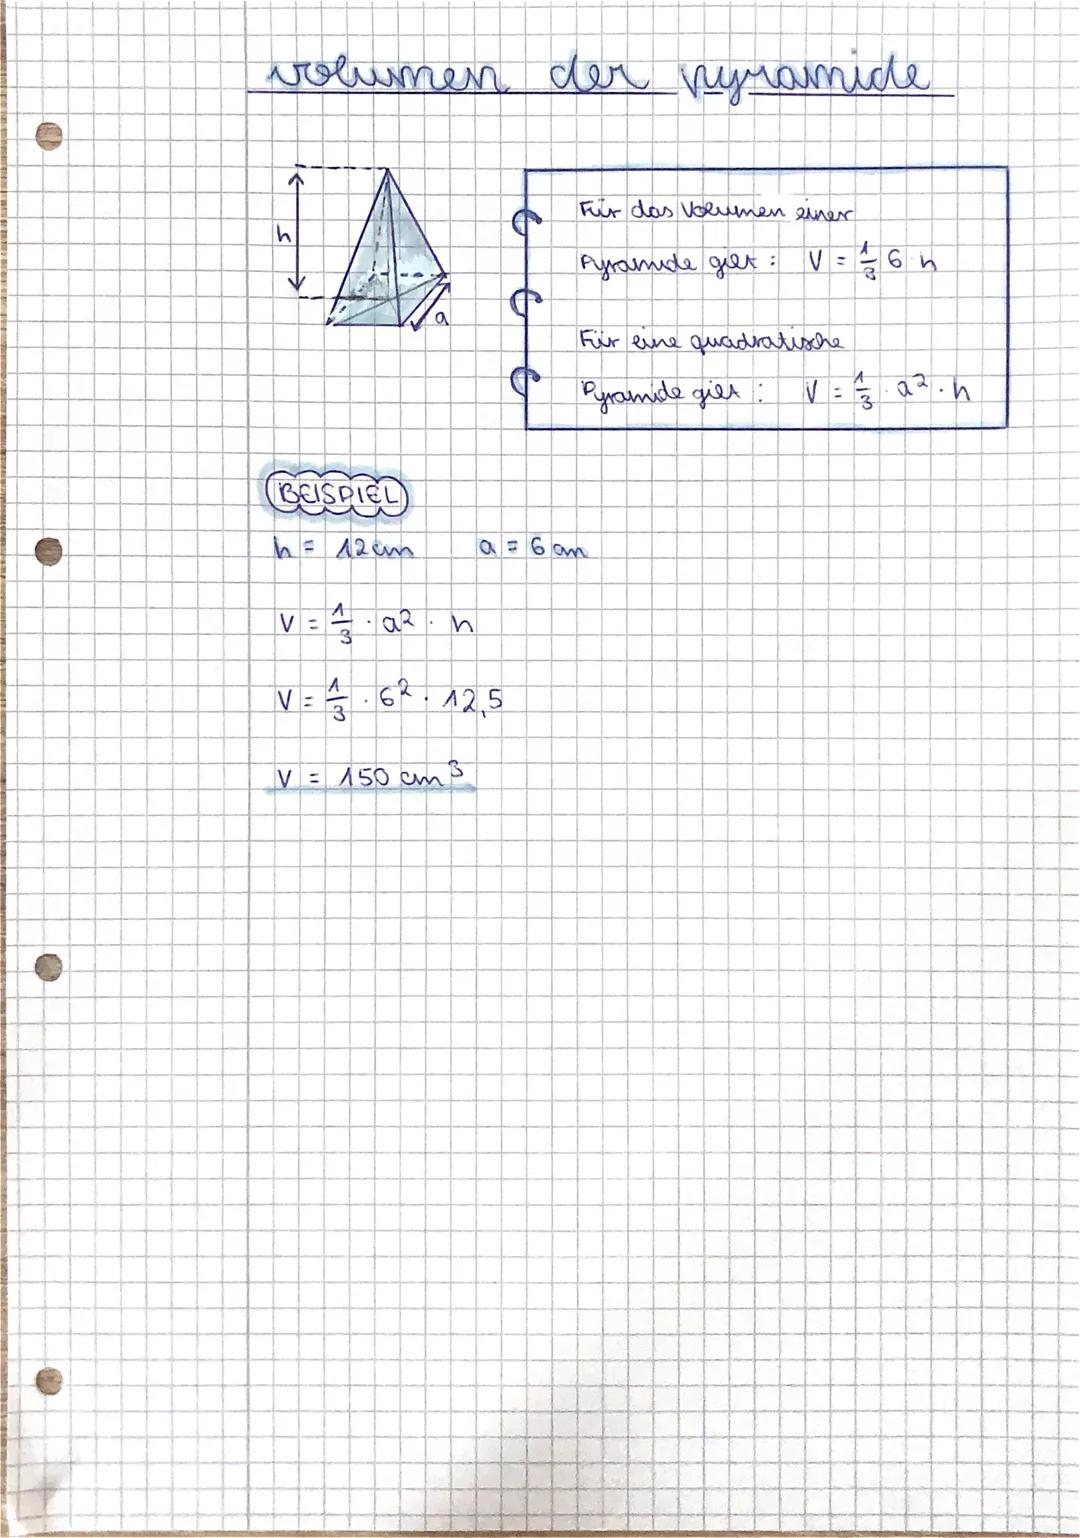 volumen der pyramide
h
a
Für das Volumen einer
Pyramide gilt : V = 1/3 G · h
Für eine quadratische
Pyramide gilt : V = 1/3 · a² · h
BEISPIEL
h = 12 cm a = 6 cm
V = 1/3 · a² · h
V = 1/3 · 6² · 12,5
V = 150 cm³